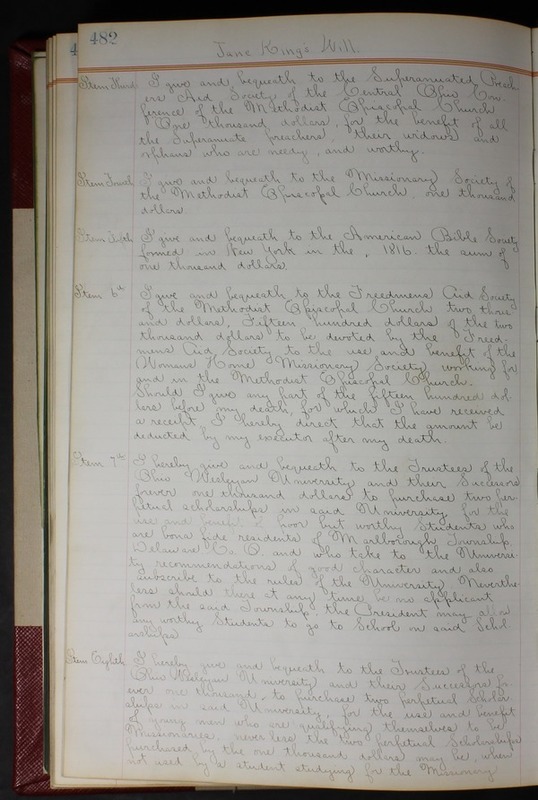 482
Jane Kings Will.
Item Third I give and bequeath to the Superanuated Preach-
ers Aid Society of the Central Ohio Con-
ference of the Methodist Episcopal Church
One thousand dollars, for the benefit of all
the Superanuate preachers, their widows and
orphans who are needy, and worthy.
Item Fourth I give and bequeath to the Missionary Society of
the Methodist Episcopal Church, one thousand
dollars
Item Fifth I give and bequeath to the American Bible Society
formed in New York in the, 1816. the sum of
one thousand dollars.
Item 6th I give and bequeath to the Freedmens Aid Society
of the Methodist Episcopal Church two thous-
and dollars, Fifteen hundred dollars of the two
thousand dollars to be devoted by the Freed-
mens Aid Society to the use and benefit of the
Womans Home Missionary Society working for
and in the Methodist Episcopal Church.
Should I give any part of the fifteen hundred dol-
lars before my death, for which I have received
a receipt, I hereby direct that the amount be
deducted by my executor after my death.
Item 7th I hereby give and bequeath to the Trustees of the
Ohio Wesleyan University and their Successors
forever one thousand dollars to purchase two per-
petual scholarships in said University, for the
use and benefit of poor but worthy Students who
are bona fide residents of Marlborough Township,
Delaware Co. O and who take to the Universi-
ty recommendations of good character and also
subscribe to the rules of the University. Neverthe-
less should there at any time be no applicant
from the said Township, the President may allow
any worthy Students to go to School on said Schol-
arships
Item Eighth I hereby give and bequeath to the Trustees of the
Ohio Wesleyan University and their Successors for-
ever one thousand, to purchase two perpetual Scholar-
ships in said University, for the use and benefit
of young men who are qualifying themselves to be
Missionaries, never less the two perpetual Scholarships
purchased by the one thousand dollars may be, when
not used by a student studying for the Missionary